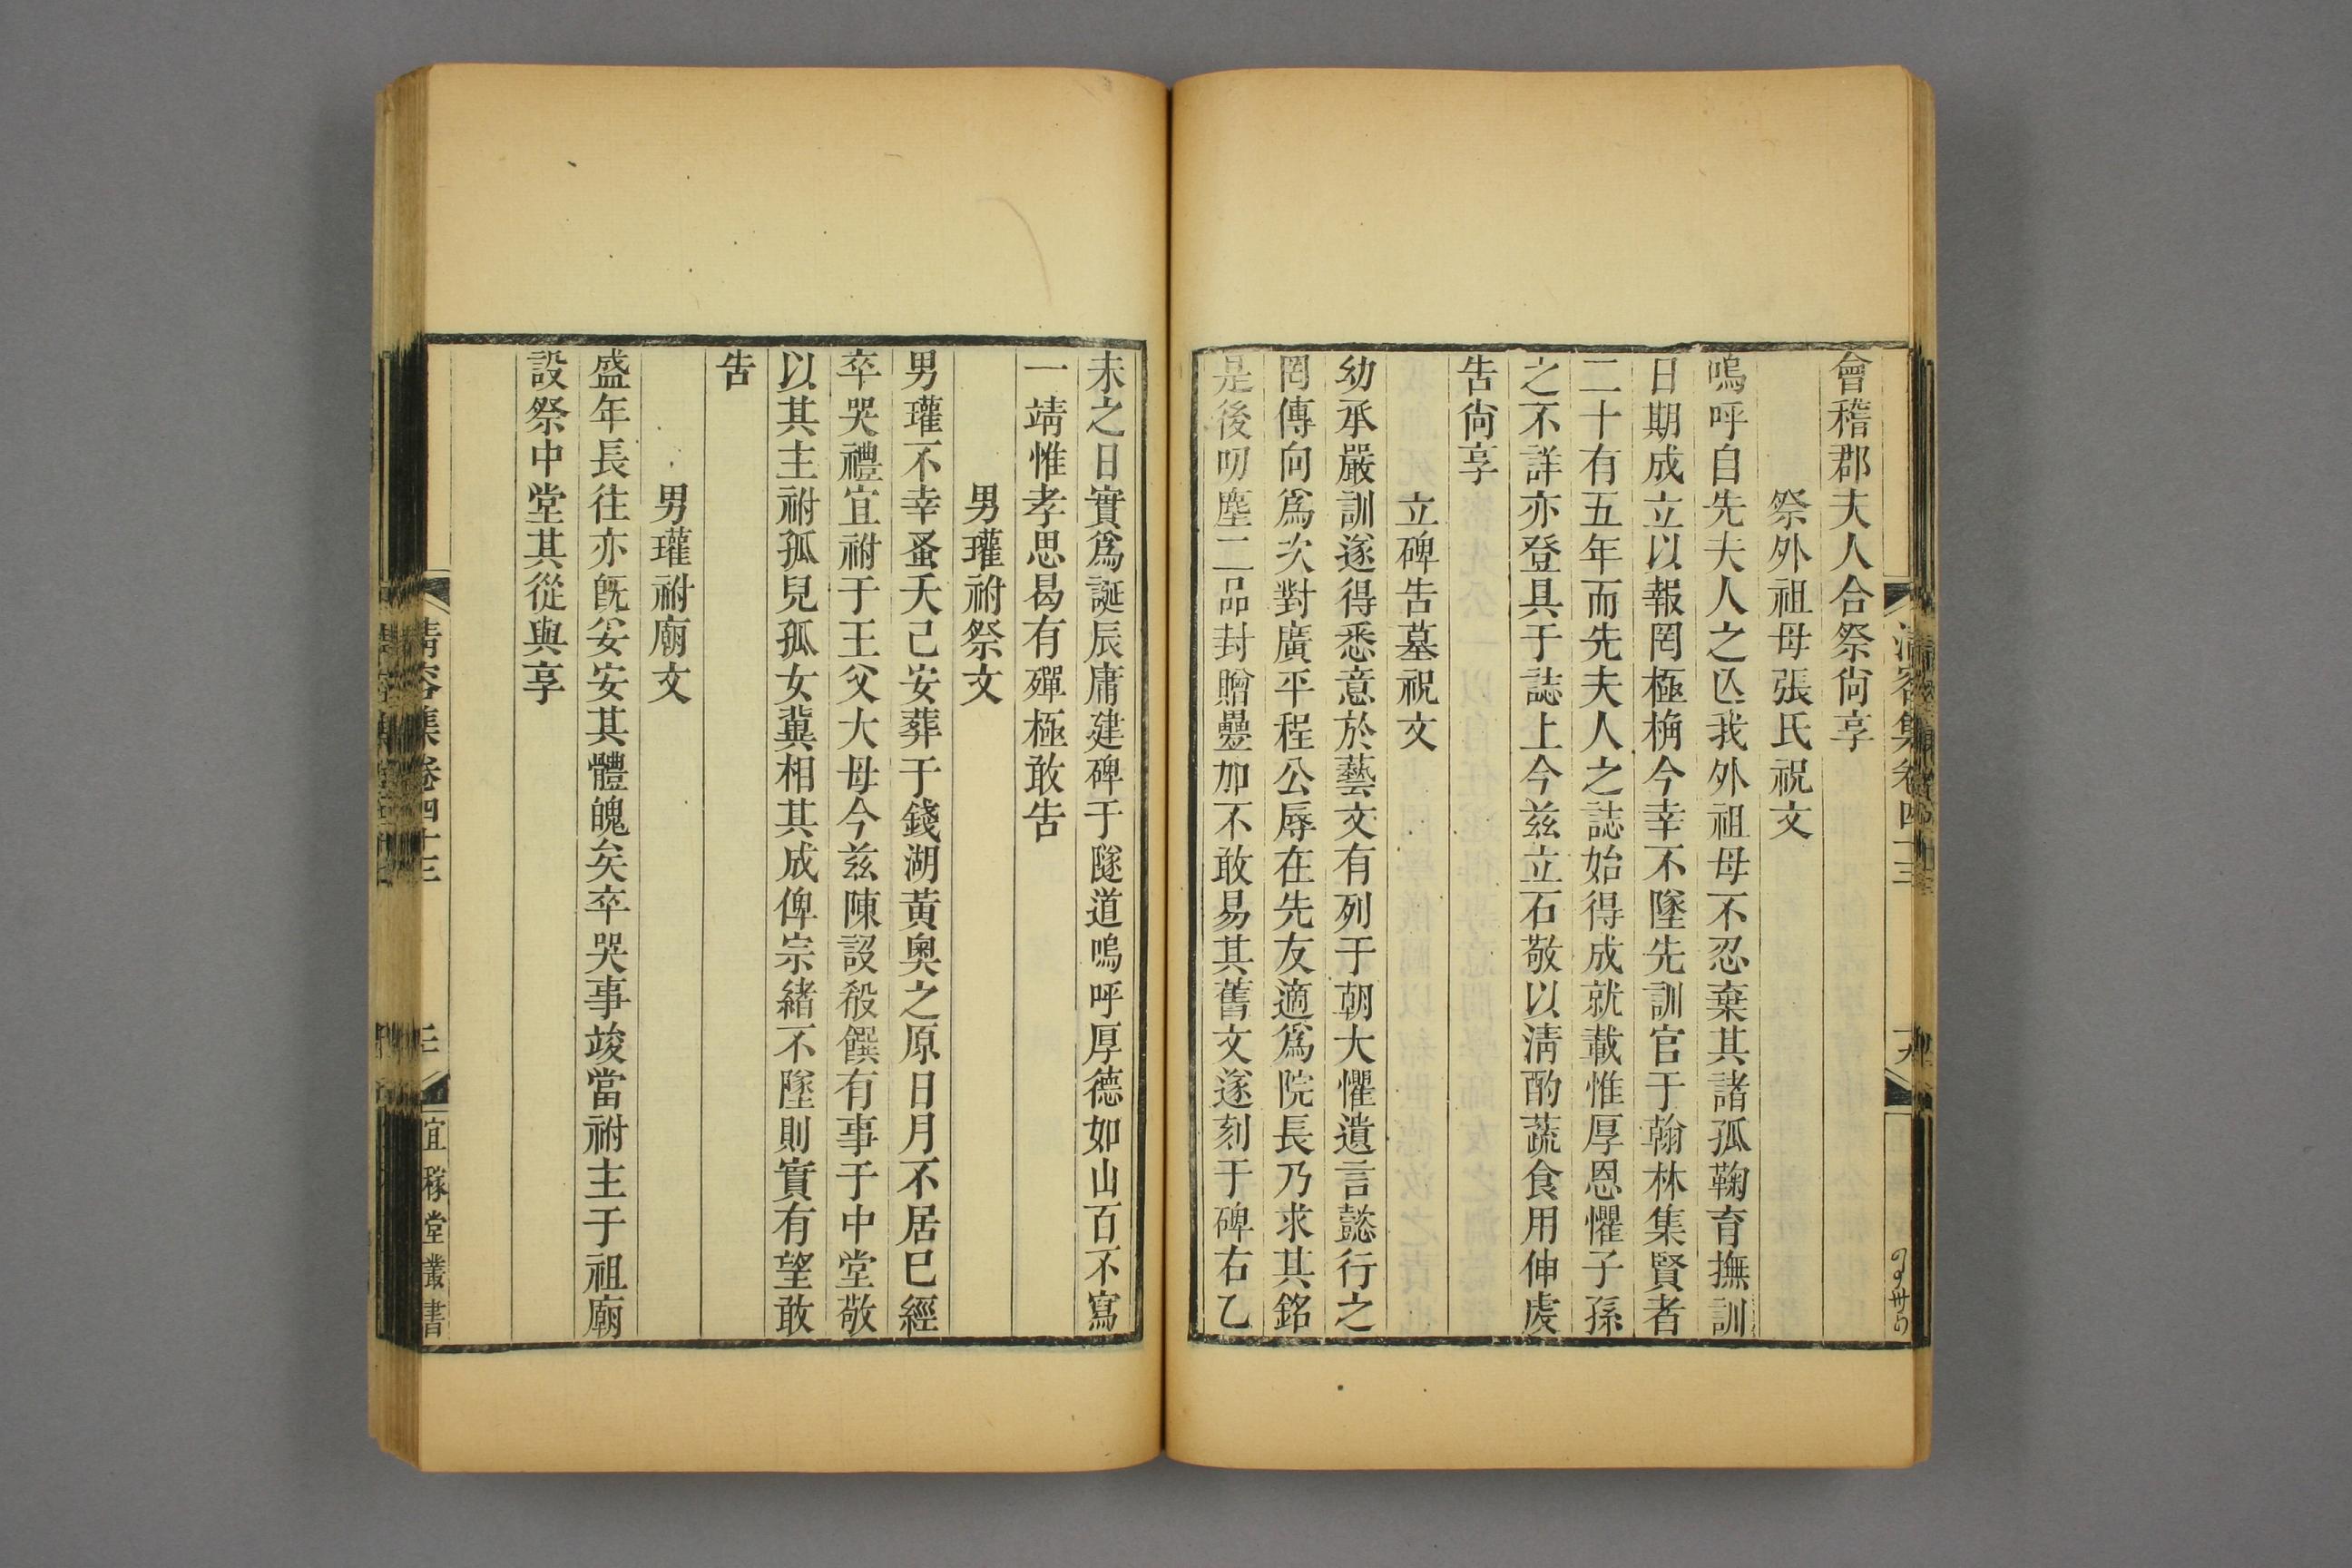 會稽郡夫人合祭尙享
祭外祖母張氏祝文
嗚呼自先夫人之亾我外祖母不忍棄其諸孤鞠育撫訓
日期成立以報罔極桷今幸不墜先訓官于翰林集賢者
二十有五年而先夫人之誌始得成就載惟厚恩懼子孫
之不詳亦登具于誌上今兹立石敬以淸酌蔬食用伸虔
告尙享
立碑告墓祝文
幼承嚴訓遂得悉意於藝文有列于朝大懼遺言懿行之
罔傳向爲次對廣平程公辱在先友適爲院長乃求其銘
是後叨塵二品封贈疊加不敢易其舊文遂刻于碑右乙
未之日實爲誕辰庸建碑于隧道嗚呼厚德如山百不寫
一靖惟孝思曷有殫極敢告
男瓘祔祭文
男瓘不幸蚤夭己安葬于錢湖黃奧之原日月不居巳經
卒哭禮宜祔于王父大母今兹陳設殽饌有事于中堂敬
以其主祔孤兒孤女冀相其成俾宗緒不墜則實有望敢
告
男瓘祔廟文
盛年長往亦旣妥安其體魄矣卒哭事竣當祔主于祖廟
設祭中堂其從與享
清容集卷四十三
宜稼堂叢書